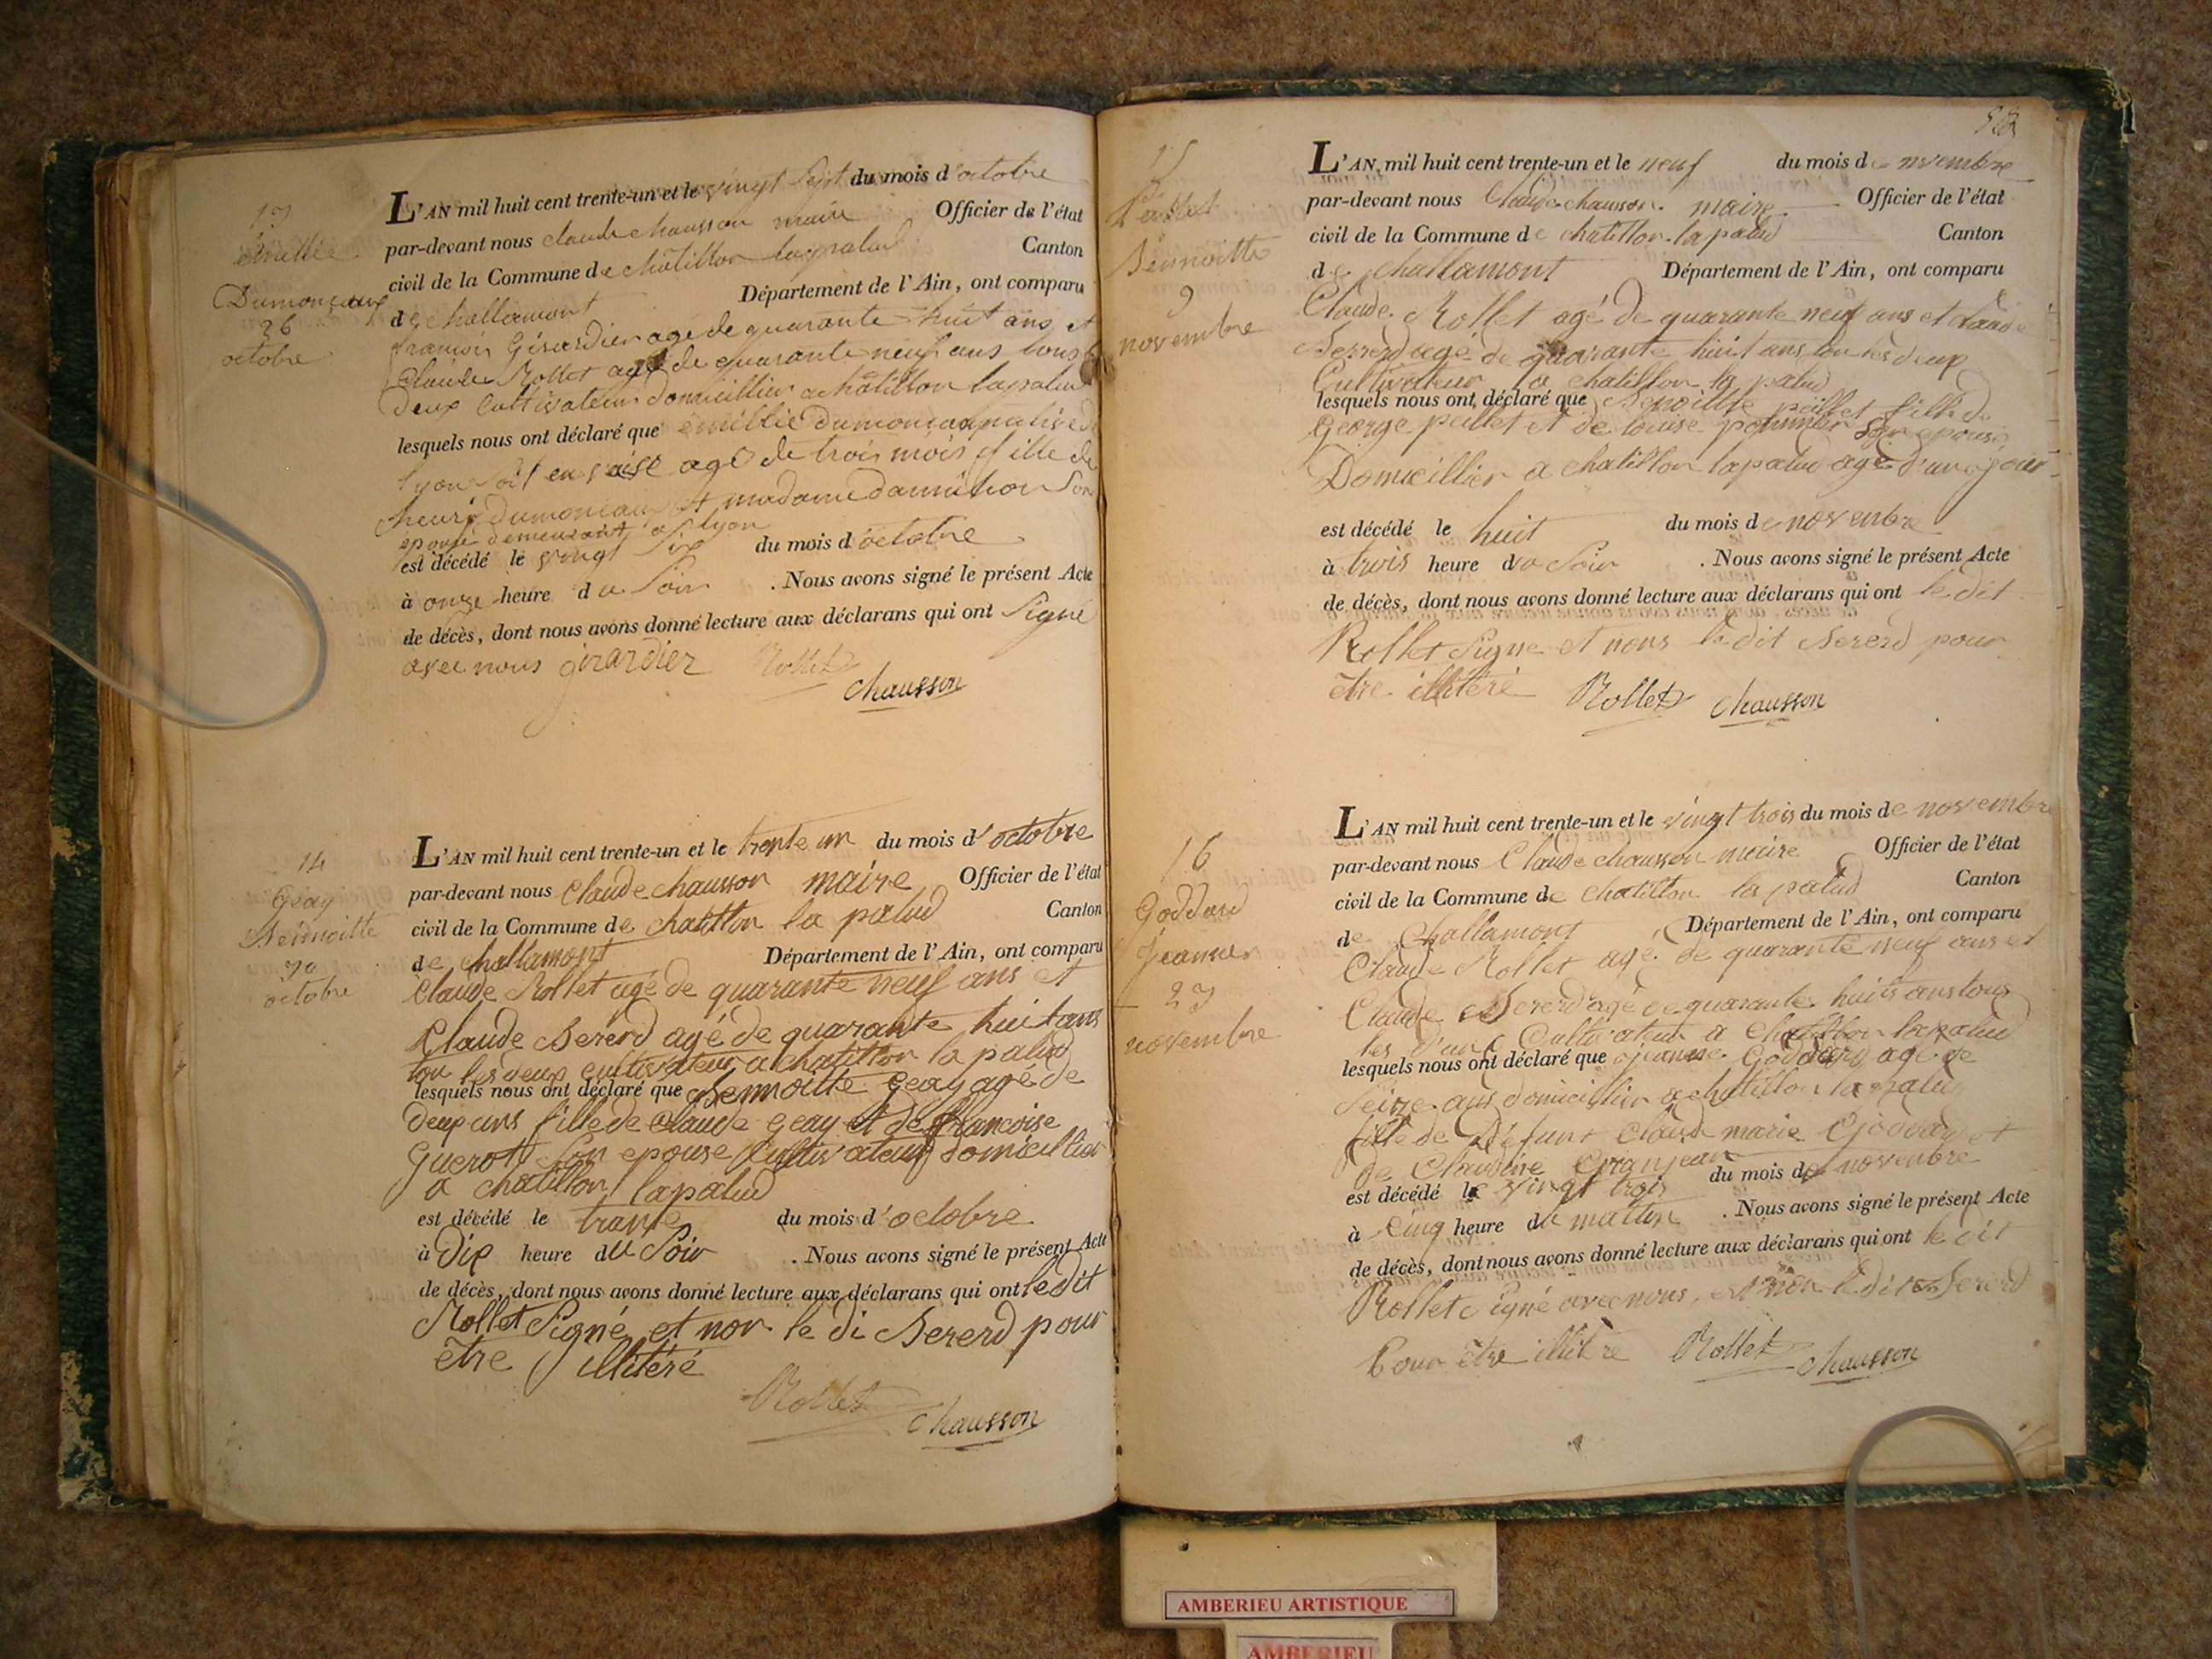 13
émillie
Dumonceaux
26
octobre
L'AN mil huit cent trente-un et le vingt sept du mois d'octobre
par-devant nous claude chausson maire Officier de l'état
civil de la Commune de châtillon lapalud Canton
de challamont Département de l'Ain, ont comparu
françois Girardier agé de quarante huit ans et
Claude Rollet agé de quarante neuf ans tous
deux Cultivateur domicillier a châtillon lapalud
lesquels nous ont déclaré que émillie Dumonceaux native de
lyon en vaise agé de trois mois fille de
heuré dumonceau et madame son
epouse demeurant a lyon
est décédé le vingt Six du mois d'octobre
à onze heure du Soir . Nous avons signé le présent Acte
de décès, dont nous avons donné lecture aux déclarans qui ont Signé
avec nous girardier Rollet
chausson
14
Geay
Bennoitte
30
octobre
L'AN mil huit cent trente-un et le trente un du mois d'octobre
par-devant nous Claude chausson maire Officier de l'état
civil de la Commune de chatillon la palud Canton
de challamont Département de l'Ain, ont comparu
Claude Rollet agé de quarante neuf ans et
Claude Bererd agé de quarante huit ans
tou les deux cultivateur a chatillon la palud
lesquels nous ont déclaré que Bennoitte Geay agé de
deux ans fille de Claude geay et de francoise
Guerot Son epouse Cultivateur domicillier
a chatillon lapalud
est décédé le trante du mois d'octobre
à Dix heure du Soir . Nous avons signé le présent Acte
de décès, dont nous avons donné lecture aux déclarans qui ont le dit
Rollet Signé et non le di Bererd pour
être illitéré
Rollet
chausson
15
Bennoitte
9
novembre
L'AN mil huit cent trente-un et le neuf du mois de nvembre
par-devant nous Claude chausson maire Officier de l'état
civil de la Commune de chatillon la palud Canton
de challamont Département de l'Ain, ont comparu
Claude Rollet agé de quarante neuf ans et Claude
Bererd agé de quarante huit ans tou les deux
Cultivateur a chatillon la palud
lesquels nous ont déclaré que Benoitte peillet fille de
George peillet et de louise son epouse
Domicillier a chatillon lapalud agé d'un jour
est décédé le huit du mois de novenbre
à trois heure du Soir . Nous avons signé le présent Acte
de décès, dont nous avons donné lecture aux déclarans qui ont le dit
Rollet Signe et nons le dit Bererd pour
être illitéré Rollet chausson
16
Goddard
Jeanne
23
novembre
L'AN mil huit cent trente-un et le vingt trois du mois de novembre
par-devant nous Claude chausson maire Officier de l'état
civil de la Commune de chatillon la palud Canton
de Challamont Département de l'Ain, ont comparu
Claude Rollet agé de quarante neuf ans et
Claude Bererd agé de quarante huits ans tous
les deux Cultivateur a Chatillon lapalud
lesquels nous ont déclaré que jeanne Goddard agé de
Seize ans domicillier a chatillon la palud
fille de Défunt Claude marie Goddard et
de Claudine Granjean
est décédé le vingt trois du mois de novenbre
à Cinq heure du mattin . Nous avons signé le présent Acte
de décès, dont nous avons donné lecture aux déclarans qui ont le dit
Rollet Signé avec nous et non le dit Bererd
Pour être Rollet chausson
AMBERIEU ARTISTIQUE
AMBERIEU